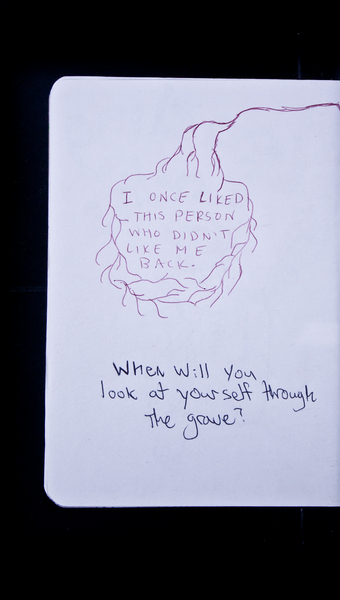 I ONCE LIKED
THIS PERSON
WHO DIDN'T
LIKE ME
BACK.
When Will You
look at yourself through
The grave?